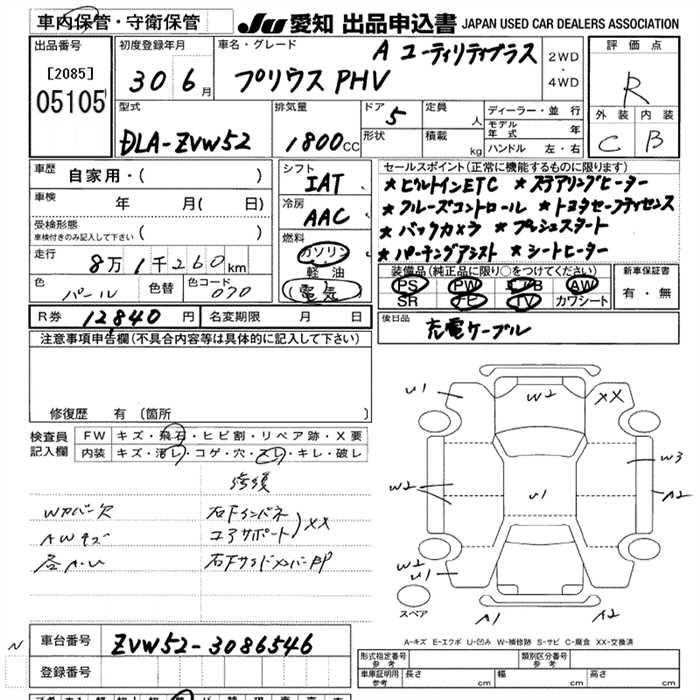 車内保管・守衛保管
JU 愛知 出品申込書 JAPAN USED CAR DEALERS ASSOCIATION
出品番号
[2085]
05105
初度登録年月
30 6月
車名・グレード
A ユーティリティプラス
プリウスPHV
2WD
・
4WD
評価点
R
外装 内装
C B
型式
DLA-ZVW52
排気量
1800CC
ドア
5
形状
定員
人
積載
kg
ディーラー・並行
モデル年式 年
ハンドル 左・右
車歴 自家用・( )
車検 年 月( 日)
受検形態
車検付きのみ記入して下さい ( )
走行 8万1千260km
色 パール 色替 色コード 070
シフト
IAT
冷房
AAC
燃料
ガソリン
軽油
(電気)
セールスポイント(正常に機能するものに限ります)
★ビルトインETC ★ステアリングヒーター
★クルーズコントロール ★トヨタセーフティセンス
★バックカメラ ★プッシュスタート
★パーキングアシスト ★シートヒーター
装備品(純正品に限り○をつけてください)
PS PW AW
SR ナビ TV カワシート
新車保証書
有・無
R券 12,840円 名変期限 月 日
後日品 充電ケーブル
注意事項申告欄(不具合内容等は具体的に記入して下さい)
修復歴 有(箇所
検査員記入欄
FW キズ・飛石・ヒビ割・リペア跡・X要
内装 キズ・汚レ・コゲ・穴・スレ・キレ・破レ
修復
Wカバー欠 右Fインパネ
AWキズ コアサポート XX
右Fサイドメンバー
U1 W2 XX
W2 U1 W3 A2
W2
U1
A1 A2
スペア
A-キズ E-エクボ U-凹み W-補修跡 S-サビ C-腐食 XX-交換済
N
車台番号 ZVW52-3086546
登録番号
形式指定番号 参考
類別区分番号 参考
車庫証明用 参考 長さ cm 幅 cm 高さ cm